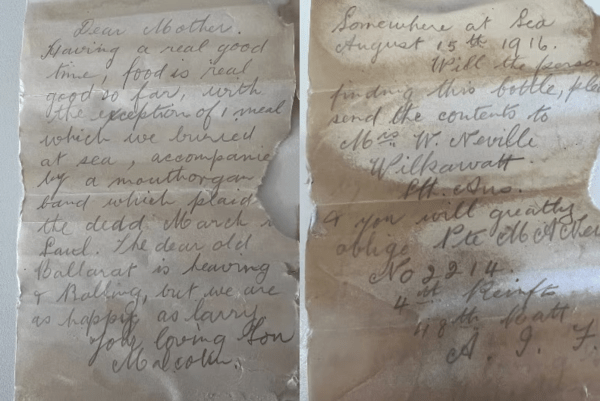 Dear Mother.
Having a real good
time, food is real
good so far, with
the exception of 1 meal
which we buried
at sea, accompanie
by a mouthorgan
band which plaid
the dedd March
Saul. The dear old
Ballarat is heaving
& Balling, but we are
as happy as larry.
Your loving Son
Malcolm.
Somewhere at Sea
August 15th 1916.
Will the person
finding this bottle, plea
send the contents to
Mrs W. Neville
Wilkawatt.
Sth. Aus.
& you will greatly
oblige Pte M A Nev
No 2214.
4th Reinfts
48th Batt
A. I. F.